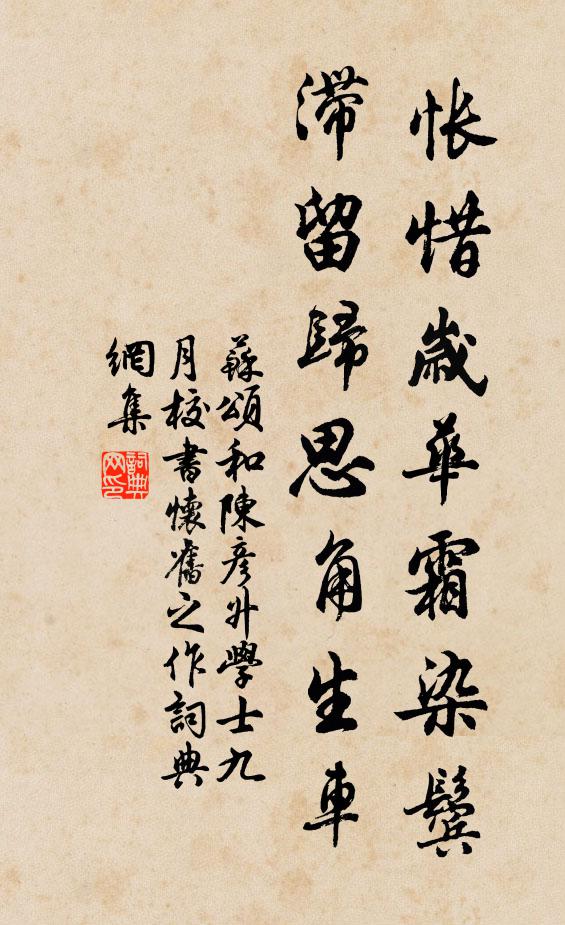 悵惜歲華霜染鬢
滯留歸思角生車
蘇頌和陳彥升學士九
月校書懷舊之作詞典
網集
詞典
网